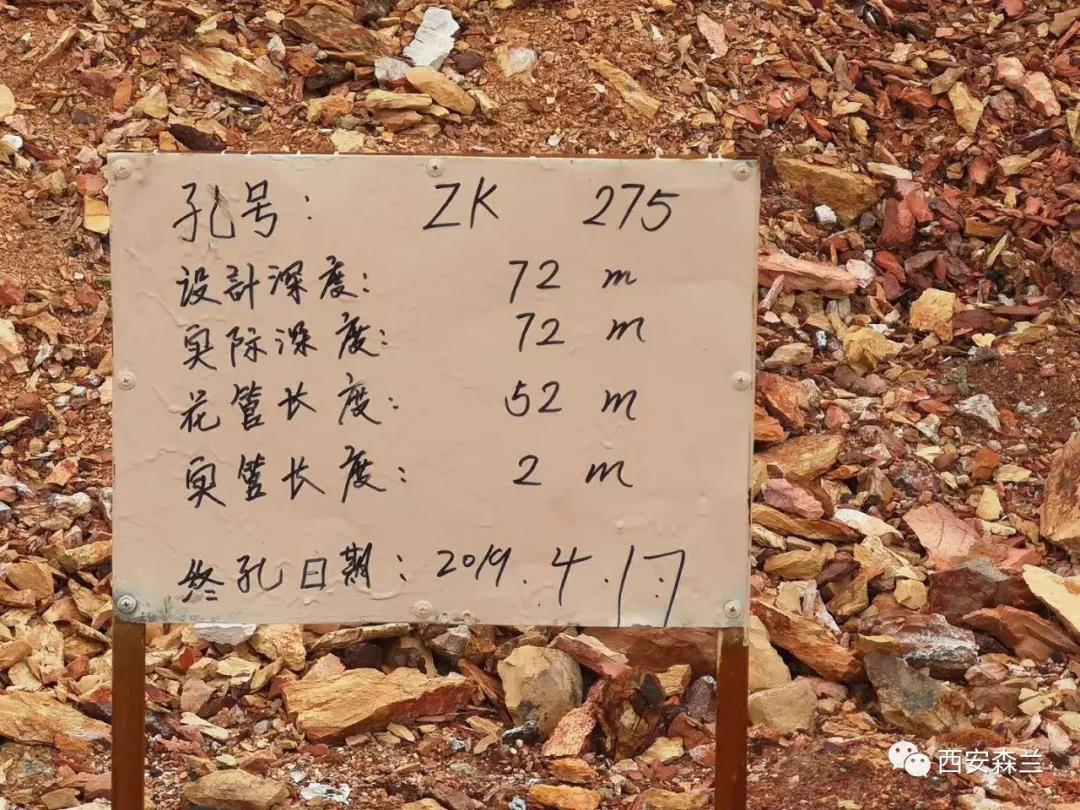 孔号: ZK 275
设計深度: 72 m
实际深度: 72 m
花管长度: 52 m
实管长度: 2 m
终孔日期: 2019.4.17
西安森兰